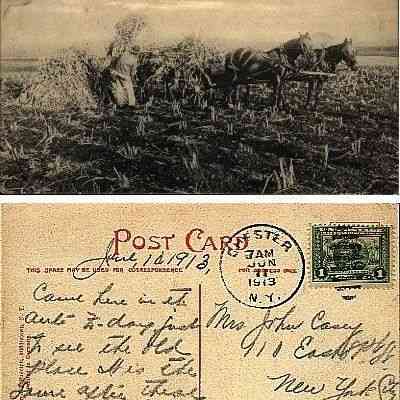 POST CARD
June 10 1913,
THIS SPACE MAY BE USED FOR CORRESPONDENCE.
CHESTER
7AM
JUN
11
1913
N.Y.
1 1
Came here in the
auto to-day just
to see the old
place It is the
same after these
Mrs John Casey
911 East
New York City